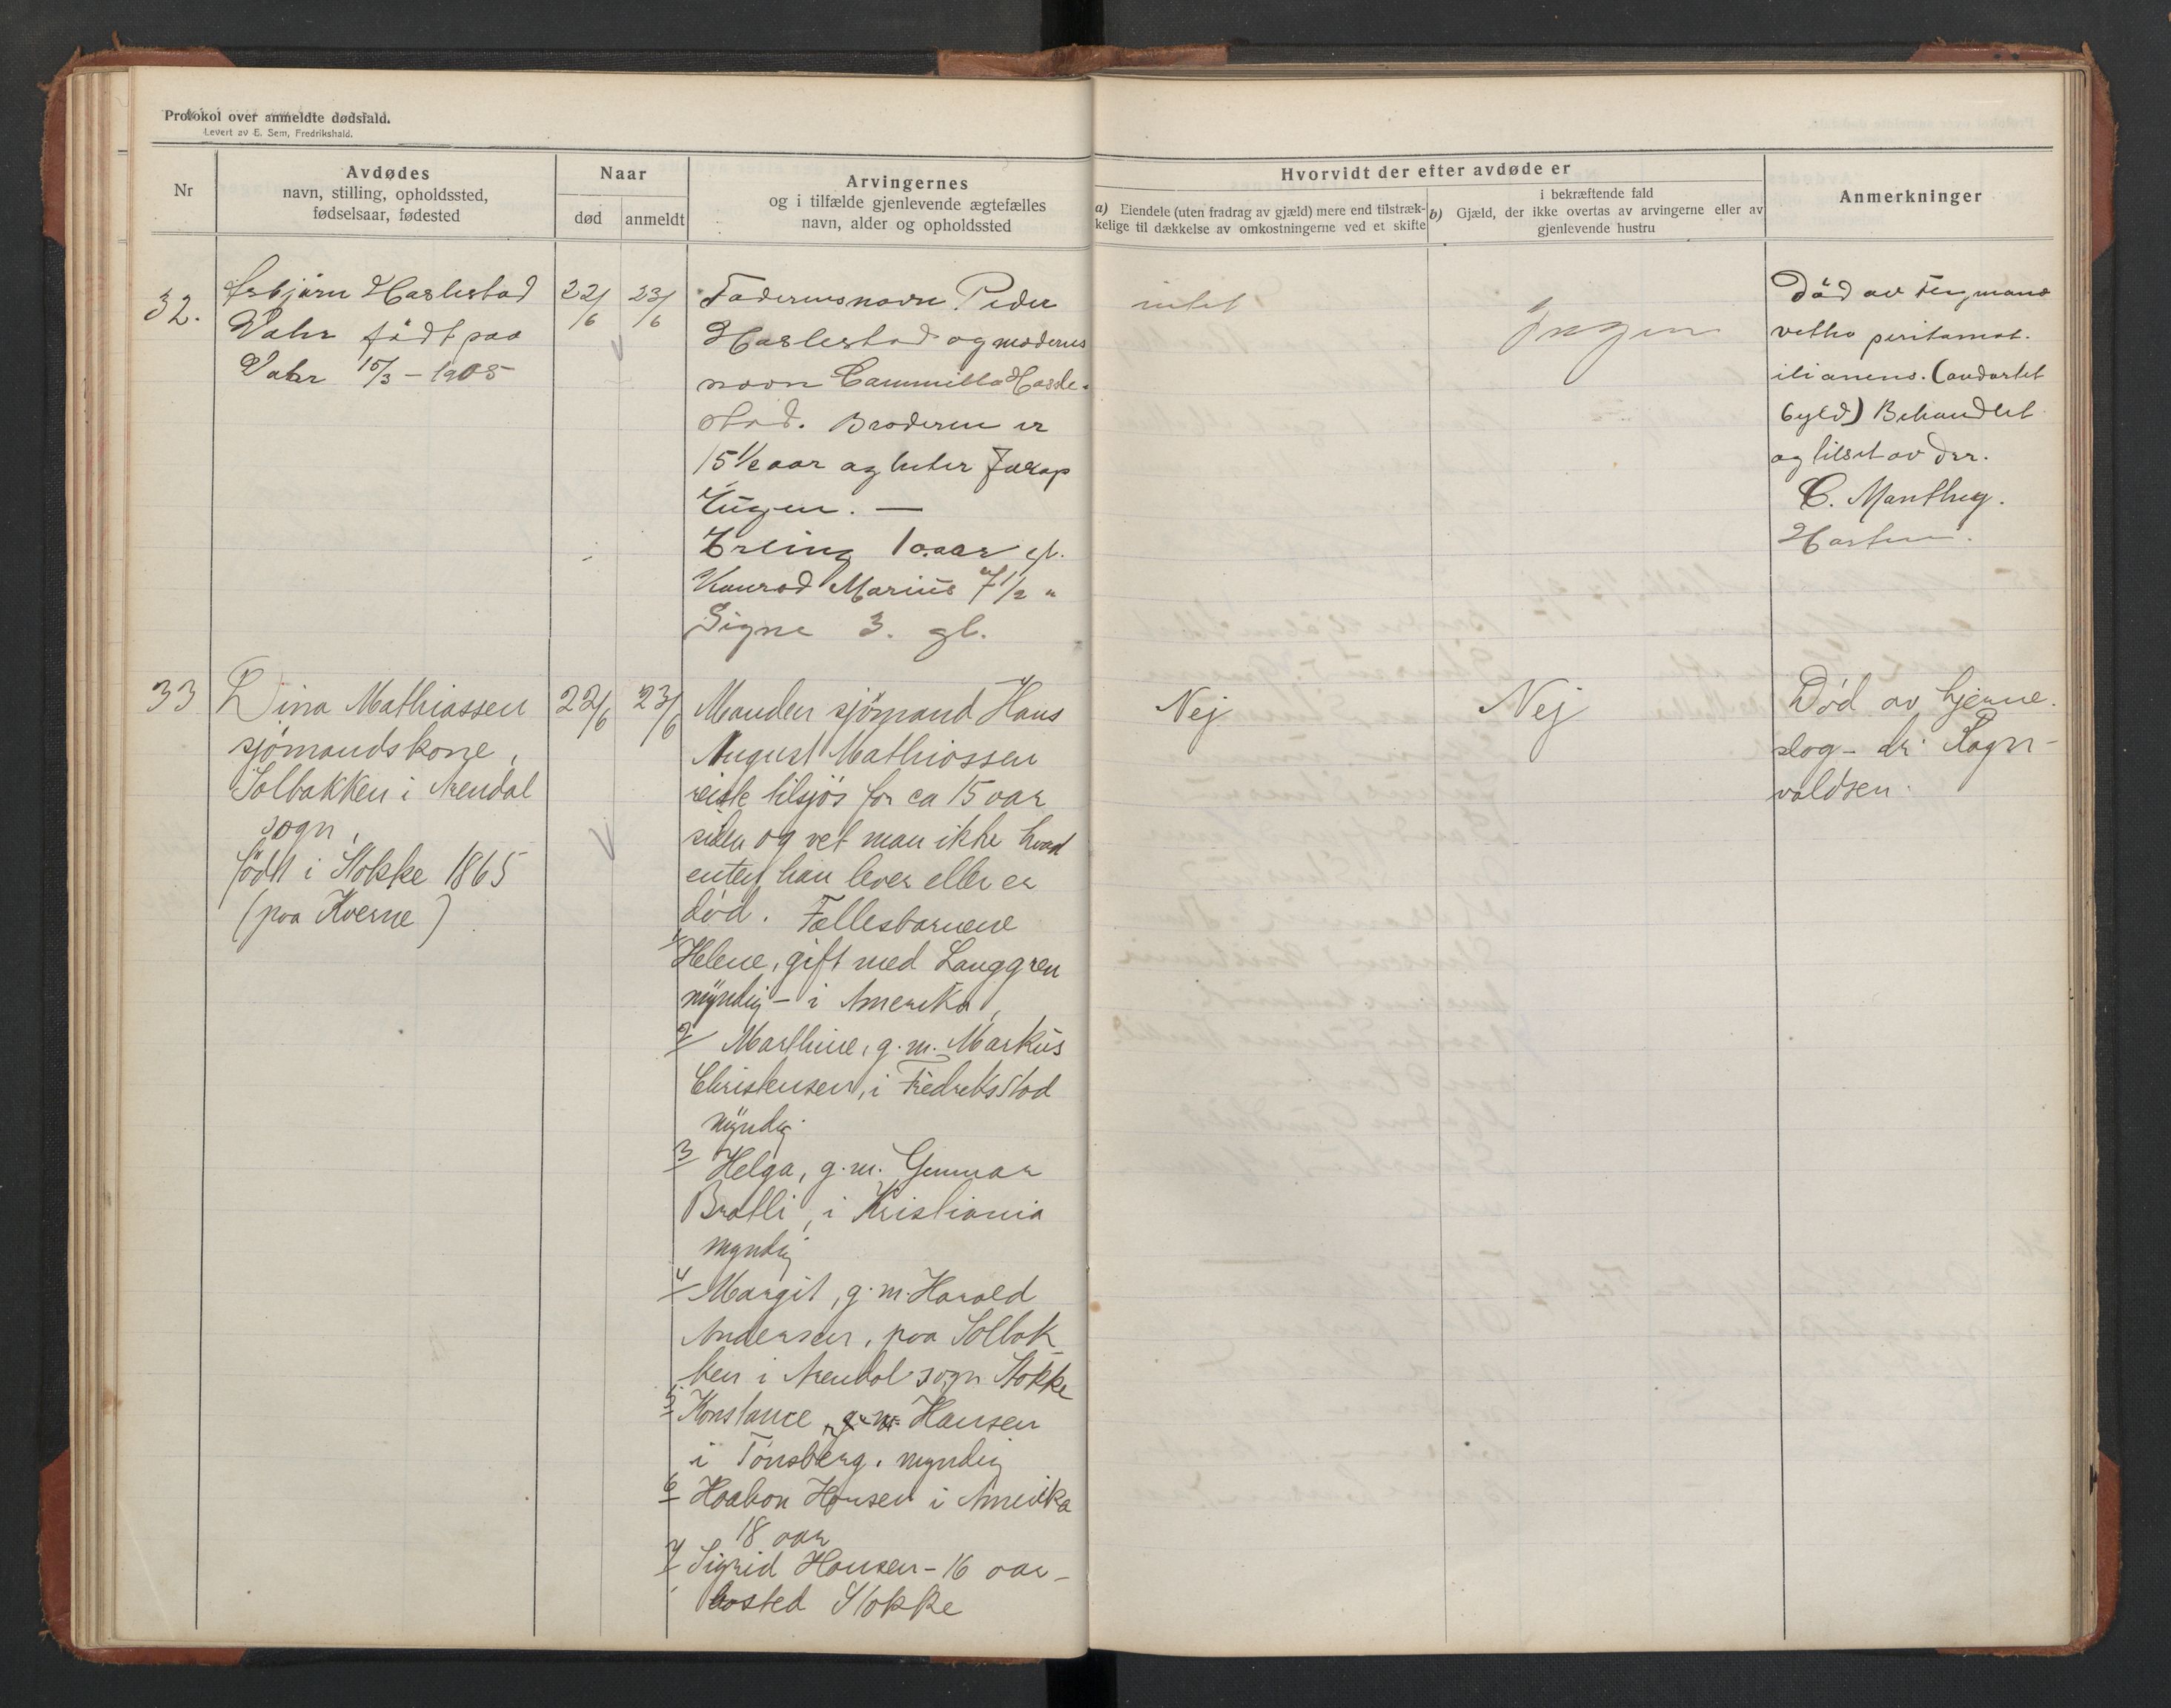 Protokol over anmeldte dødsfald.
Levert av E. Sem, Fredrikshald.
Nr
Avdødes
navn, stilling, opholdssted,
fødselsaar, fødested
Naar
død
anmeldt
Arvingernes
og i tilfælde gjenlevende ægtefælles
navn, alder og opholdssted
Hvorvidt der efter avdøde er
a) Eiendele (uten fradrag av gjæld) mere end tilstræk-
kelige til dækkelse av omkostningerne ved et skifte
i bekræftende fald
b) Gjæld, der ikke overtas av arvingerne eller av
gjenlevende hustru
Anmerkninger
32.
Asbjørn Haslestad
Vahr født paa
Vahr 15/3 - 1905
22/6
23/6
Faderens navn Peder
Haslestad og moderns
navn Cammilla Hasle-
stad. Broderen er
15 1/2 aar og heter
Eugen. —
Erling 10 aar gl.
Konrad Marius 7 1/2 "
Signe 3. gl.
intet
Ingen
Død av
Behandlet
og tilset av
C. Manthey.
33
Dina Mathiassen
sjömandskone,
Solbakken i Arendal
sogn,
født i Stokke 1865
(paa Kverne)
22/6
23/6
Manden sjömand Hans
August Mathiassen
reiste tilsjös for ca 15 aar
siden og vet man ikke hvad
enten han lever eller er
død. Fællesbarnene
1/ Helene, gift med Langgren
myndig - i Amerika,
2/ Marthine, g. m. Markus
Christensen, i Fredriksstad
myndig.
3/ Helga, g. m. Gunnar
Bratli, i Kristiania
myndig
4/ Margit, g. m. Harald
Andersen, paa Solbak-
ken i Arendal sogn Stokke
5/ Konstance g. m. Hansen
i Tönsberg. myndig
6/ Haakon Hansen i Amerika
18 aar
7/ Sigrid Hansen - 16 aar -
bosted Stokke
Nej
Nej
Død av hjerne-
slag - dr. Ragn-
valdsen.